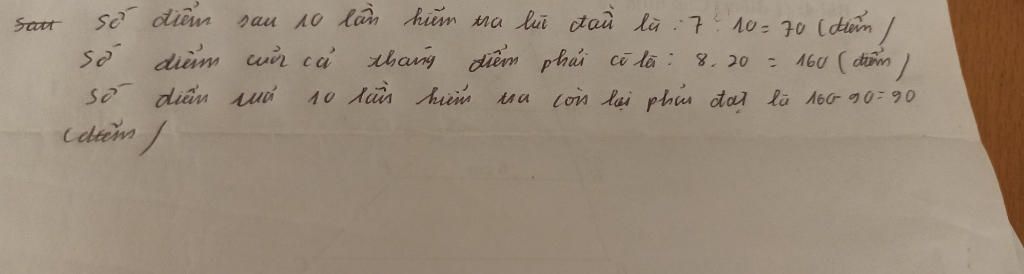 Số điểm sau 10 lần kiểm tra lúc đầu là : 7 . 10 = 70 (điểm)
Số điểm của cả tháng điểm phải có là : 8 . 20 = 160 (điểm)
Số điểm 10 lần kiểm tra còn lại phải đạt là 160 - 90 = 90
(điểm)